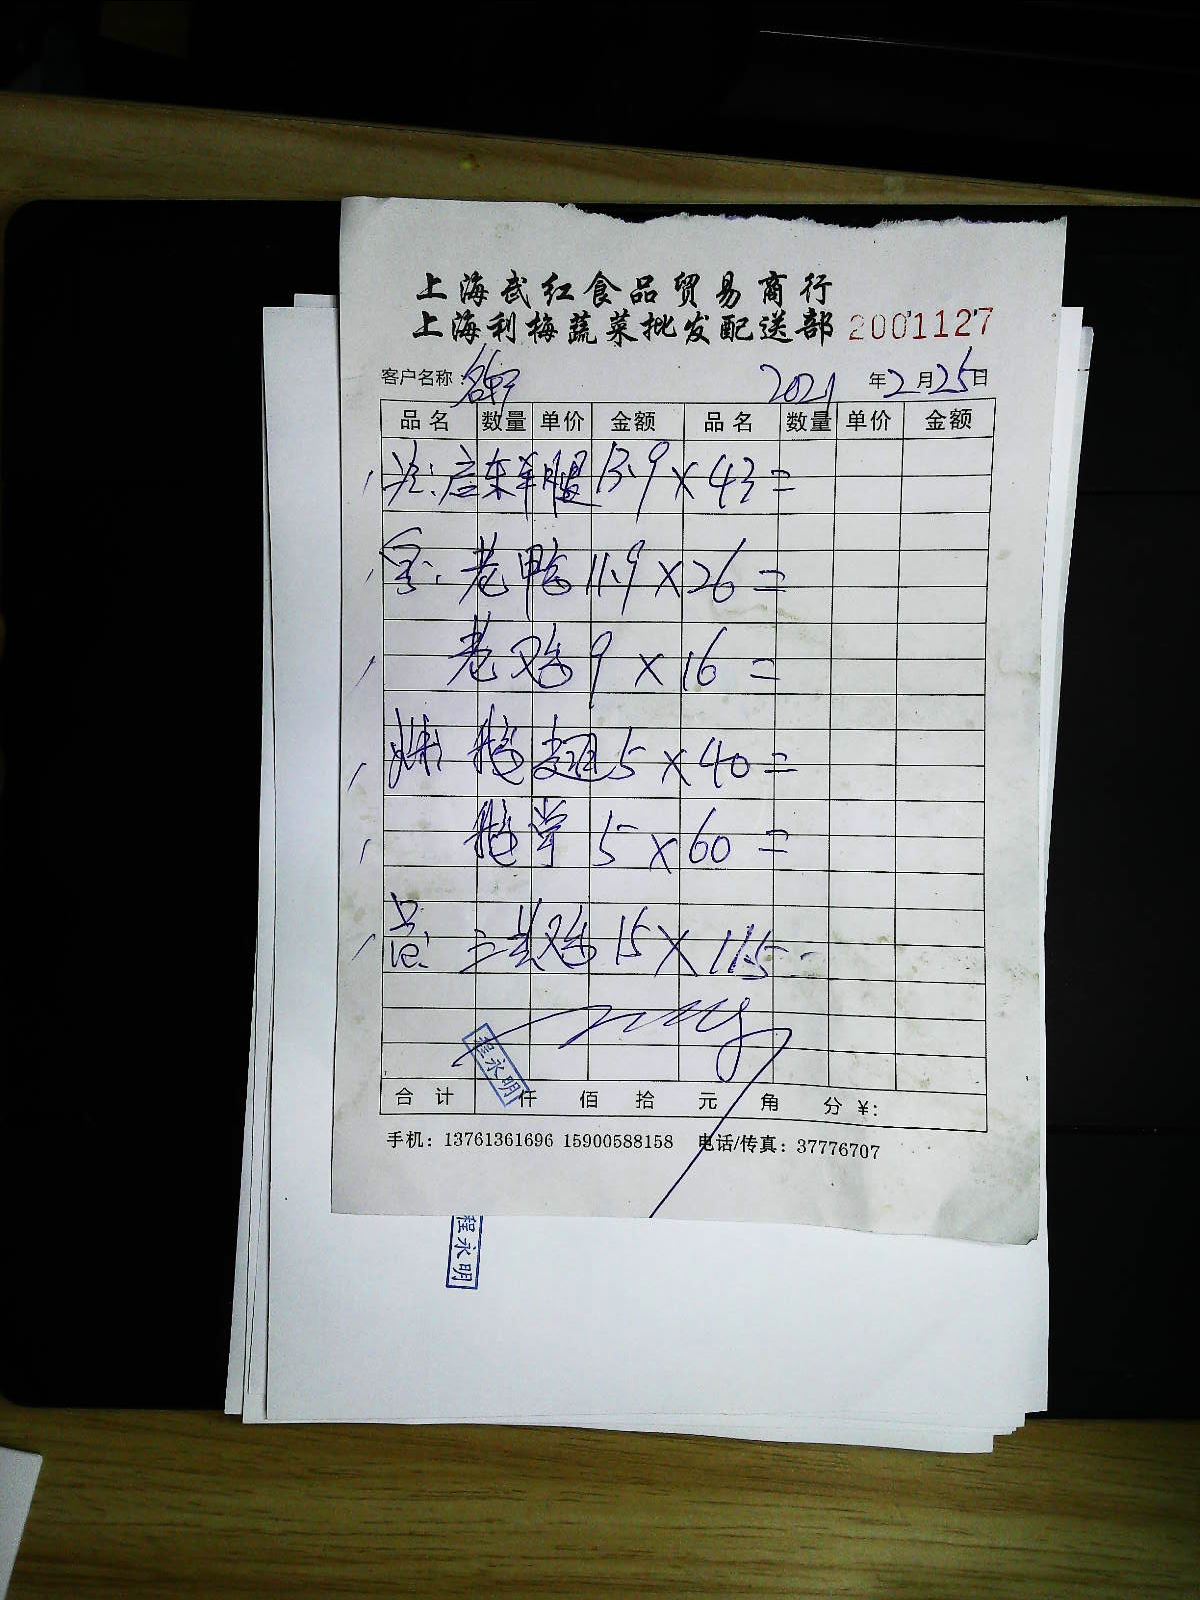 上海武红食品贸易商行
上海利梅蔬菜批发配送部 2001127
客户名称: 2021年2月25日
品名 数量 单价 金额 品名 数量 单价 金额
广东羊腿 13.9×43=
老鸭 11.9×26=
老鸡 9×16=
鹅翅 5×40=
鹅掌 5×60=
三黄鸡 15×11.5=
程永明
合计 仟 佰 拾 元 角 分 ¥:
手机: 13761361696 15900588158 电话/传真: 37776707
程永明